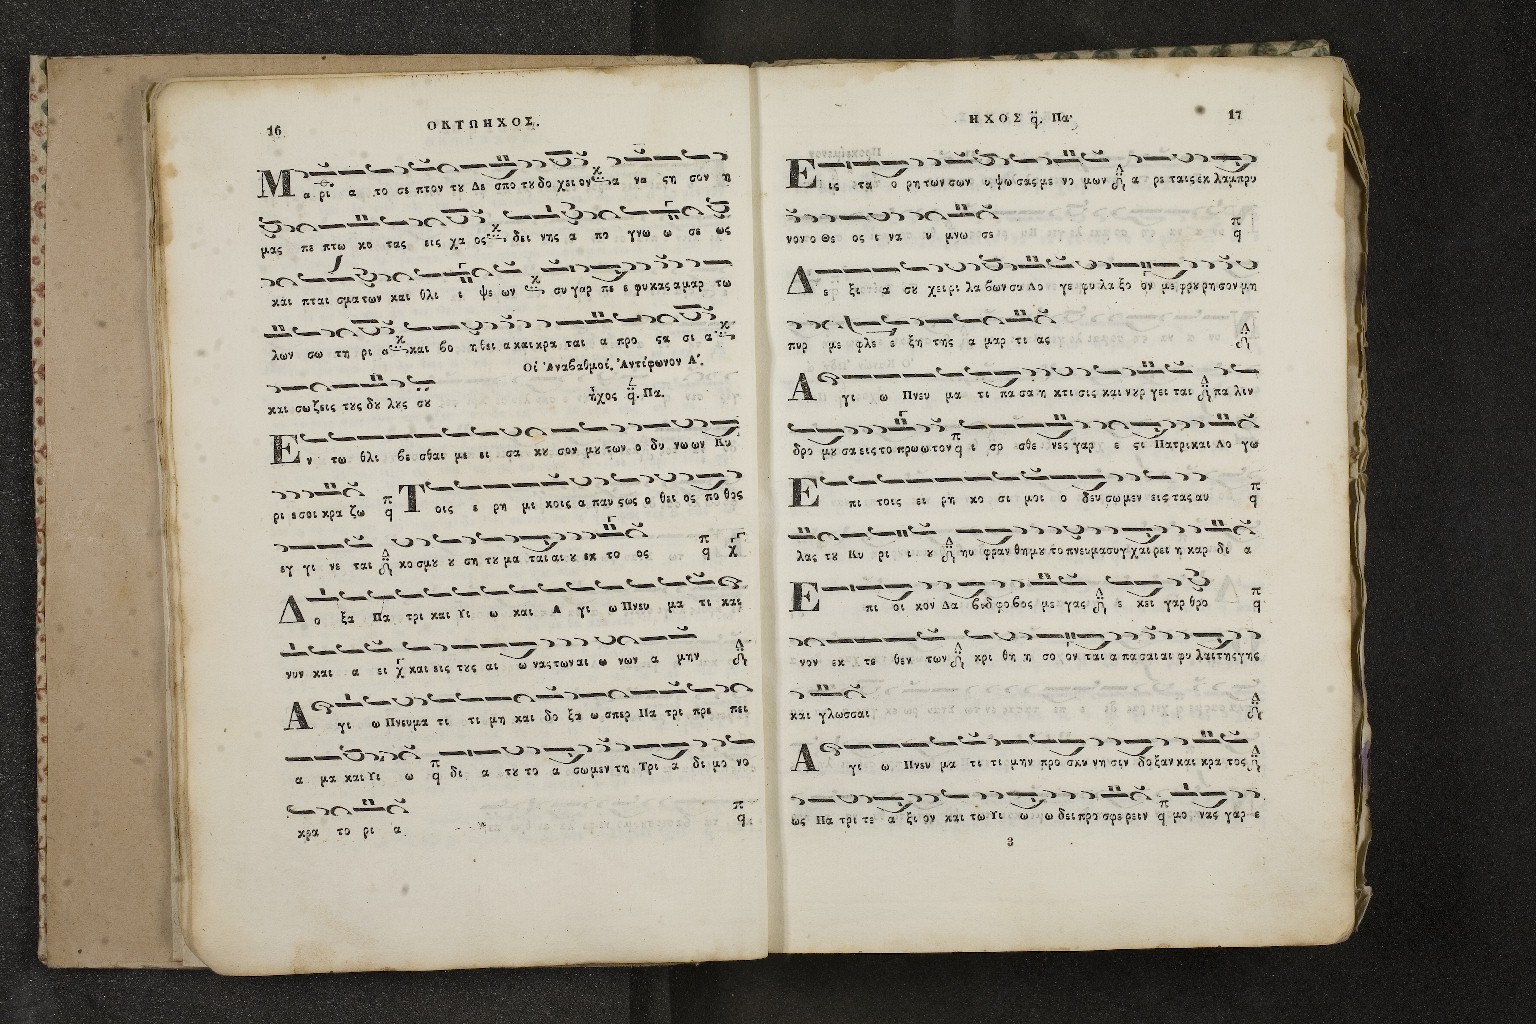 16
ΟΚΤΩΗΧΟΣ.
Μ α ρι α το σε πτον τȣ Δε σπο τȣ δο χει ον α να ςη σον η
μας πε πτω κο τας εις χα ος δει νης α πο γνω ω σε ως
και πται σμα των και θλι ι ψε ων συ γαρ πε ε φυ κας α μαρ τω
λων σω τη ρι α και βο η θει α και κρα ται α προ ςα σι α
Οἱ Ἀναβαθμοί. Ἀντίφωνον Α΄.
και σω ζεις τȣς δȣ λȣς σȣ
ἦχος q. Πα.
Ε ν τω θλι βε σθαι με ει σα κȣ σον μȣ των ο δυ νω ων Κυ
ρι ε σοι κρα ζω π q Τ οις ε ρη μι κοις α παυ ςως ο θει ος πο θος
εγ γι νε ται Δ κο σμȣ ȣ ση τȣ μα ται αι ȣ εκ το ος π q χ
Δ ο ξα Πα τρι και Υι ω και Α γι ω Πνευ μα τι και
νυν και α ει χ και εις τȣς αι ω νας των αι ω νων α μην Δ
Α γι ω Πνευμα τι τι μη και δο ξα ω σπερ Πα τρι πρε πει
α μα και Υι ω π q δι α τȣ το α σω μεν τη Τρι α δι μο νο
κρα το ρι α π q
ΗΧΟΣ q. Πα·
17
Ε ις τα ο ρη των σων υ ψω σας με νο μων Δ α ρε ταις εκ λαμπρυ
νον ο Θε ος ι να υ μνω σε π q
Δ ε ξι α σȣ χει ρι λα βων συ Λο γε φυ λα ξο ον με φρȣ ρη σον μη
πυρ με φλε ε ξη της α μαρ τι ας Δ
Α γι ω Πνευ μα τι πα σα η κτι σις και νȣρ γει ται Δ πα λιν
δρο μȣ σα εις το πρω ω τον π q ι σο σθε νες γαρ ε ςι Πατρι και Λο γω
Ε πι τοις ει ρη κο σι μοι ο δευ σω μεν εις τας αυ π q
λας τȣ Κυ ρι ι ȣ Δ ηυ φραν θη μȣ το πνευμα συγ χαι ρει η καρ δι α
Ε πι οι κον Δα βιδ φο βος με γας Δ ε κει γαρ θρο π q
νον εκ τε θεν των Δ κρι θη η σο ον ται α πα σαι αι φυ λαι της γης
και γλωσσαι Δ
Α γι ω Πνευ μα τι τι μην προ σκυ νη σιν δο ξαν και κρα τος Δ
ως Πα τρι τε α ξι ον και τω Υι ω ω δει προ σφε ρειν π q μο νας γαρ ε
3